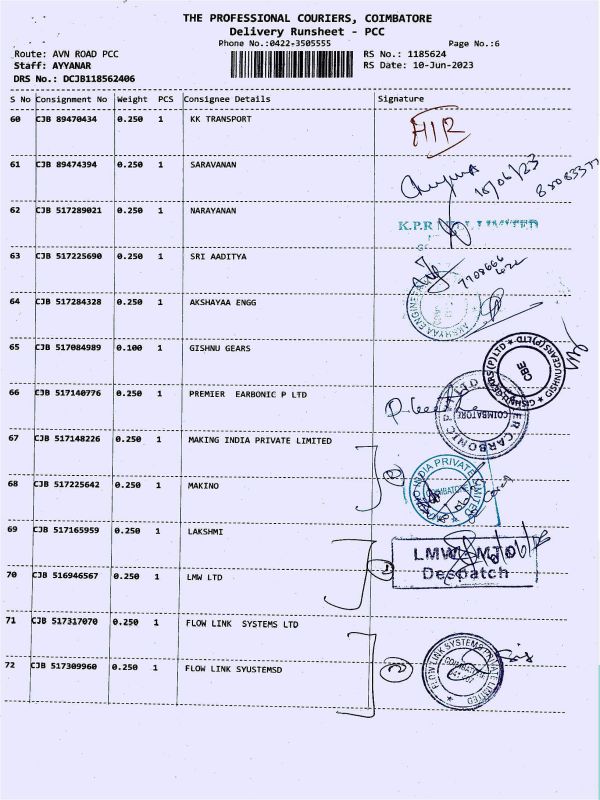 THE PROFESSIONAL COURIERS, COIMBATORE
Delivery Runsheet - PCC
Phone No.:0422-3505555 Page No.:6
Route: AVN ROAD PCC RS No.: 1185624
Staff: AYYANAR RS Date: 10-Jun-2023
DRS No.: DCJB118562406
S No Consignment No Weight PCS Consignee Details Signature
60 CJB 89470434 0.250 1 KK TRANSPORT
61 CJB 89474394 0.250 1 SARAVANAN
10/06/23
62 CJB 517289021 0.250 1 NARAYANAN
K.P.R LIMITED
63 CJB 517225690 0.250 1 SRI AADITYA
64 CJB 517284328 0.250 1 AKSHAYAA ENGG
AKSHAYAA ENGINE
65 CJB 517084989 0.100 1 GISHNU GEARS
GISHNU GEARS (P) LTD
CBE
66 CJB 517140776 0.250 1 PREMIER EARBONIC P LTD
ER CARBONIC P LTD
COIMBATORE
67 CJB 517148226 0.250 1 MAKING INDIA PRIVATE LIMITED
68 CJB 517225642 0.250 1 MAKINO
INDIA PRIVATE LIMITED
COIMBATORE
69 CJB 517165959 0.250 1 LAKSHMI
LMW MTD
Despatch
70 CJB 516946567 0.250 1 LMW LTD
71 CJB 517317070 0.250 1 FLOW LINK SYSTEMS LTD
72 CJB 517309960 0.250 1 FLOW LINK SYUSTEMSD
FLOW LINK SYSTEMS PRIVATE LIMITED
COIMBATORE